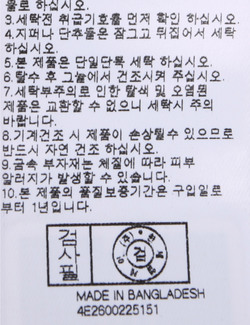 물로 하십시오.
3.세탁전 취급기호를 먼저 확인 하십시오.
4.지퍼나 단추물은 잠그고 뒤집어서 세탁
하십시오.
5.본 제품은 단일단독 세탁 하십시오.
6.탈수 후 그늘에서 건조시켜 주십시오.
7.세탁부주의로 인한 탈색 및 오염원
제품은 교환할 수 없으니 세탁시 주의
바랍니다.
8.기계건조 시 제품이 손상될수 있으므로
반드시 자연 건조 하십시오.
9.금속 부자재는 체질에 따라 피부
알러지가 발생할 수 있습니다.
10.본 제품의 품질보증기간은 구입일로
부터 1년입니다.
검사필
검
MADE IN BANGLADESH
4E2600225151